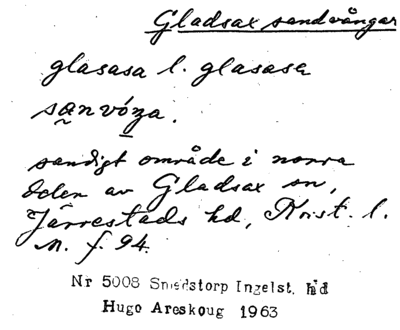 Gladsax sandvångar
glasasa l. glasasa
sanvóŋa.
sandigt område i norra
delen av Gladsax sn,
Järrestads hd, Krist. l.
M. f. 94.
Nr 5008 Smedstorp Ingelst. hd
Hugo Areskoug 1963